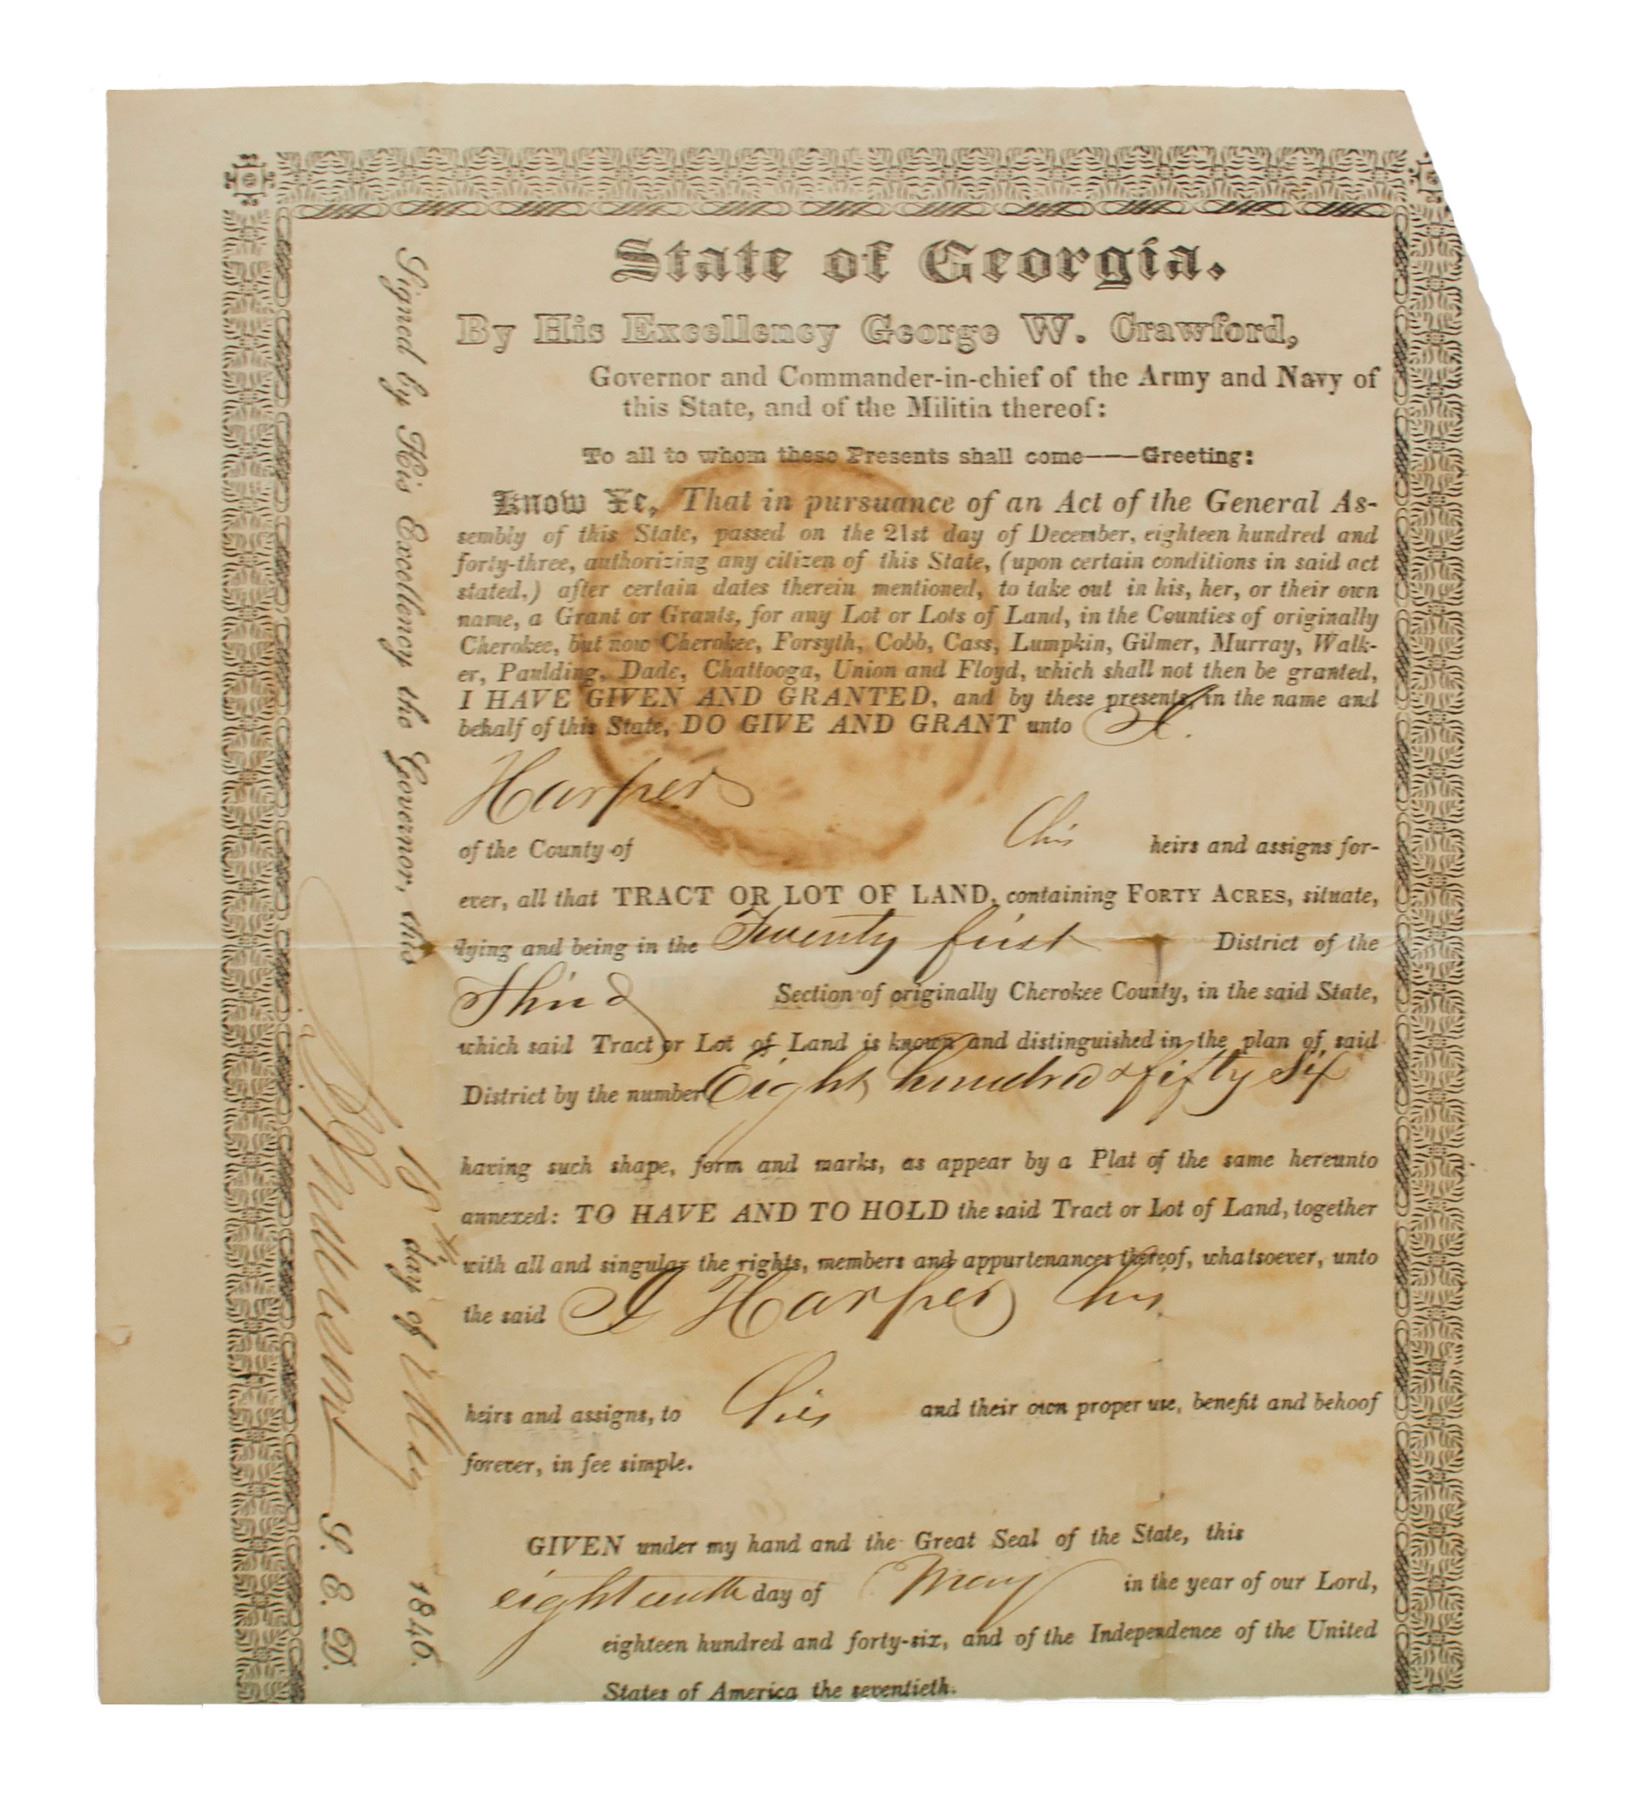 State of Georgia.
By His Excellency George W. Crawford,
Governor and Commander-in-chief of the Army and Navy of
this State, and of the Militia thereof:
To all to whom these Presents shall come——Greeting:
Know Ye, That in pursuance of an Act of the General As-
sembly of this State, passed on the 21st day of December, eighteen hundred and
forty-three, authorizing any citizen of this State, (upon certain conditions in said act
stated,) after certain dates therein mentioned, to take out in his, her, or their own
name, a Grant or Grants, for any Lot or Lots of Land, in the Counties of originally
Cherokee, but now Cherokee, Forsyth, Cobb, Cass, Lumpkin, Gilmer, Murray, Walk-
er, Paulding, Dade, Chattooga, Union and Floyd, which shall not then be granted,
I HAVE GIVEN AND GRANTED, and by these presents, in the name and
behalf of this State, DO GIVE AND GRANT unto
Harper
of the County of his heirs and assigns for-
ever, all that TRACT OR LOT OF LAND, containing FORTY ACRES, situate,
lying and being in the Twenty first District of the
Third Section of originally Cherokee County, in the said State,
which said Tract or Lot of Land is known and distinguished in the plan of said
District by the number Eight hundred & fifty Six
having such shape, form and marks, as appear by a Plat of the same hereunto
annexed: TO HAVE AND TO HOLD the said Tract or Lot of Land, together
with all and singular the rights, members and appurtenances thereof, whatsoever, unto
the said Harper his
heirs and assigns, to his and their own proper use, benefit and behoof
forever, in fee simple.
GIVEN under my hand and the Great Seal of the State, this
eighteenth day of May in the year of our Lord,
eighteen hundred and forty-six, and of the Independence of the United
States of America the seventieth.
Signed by His Excellency the Governor, this 18th day of May 1846.
S. E. D.